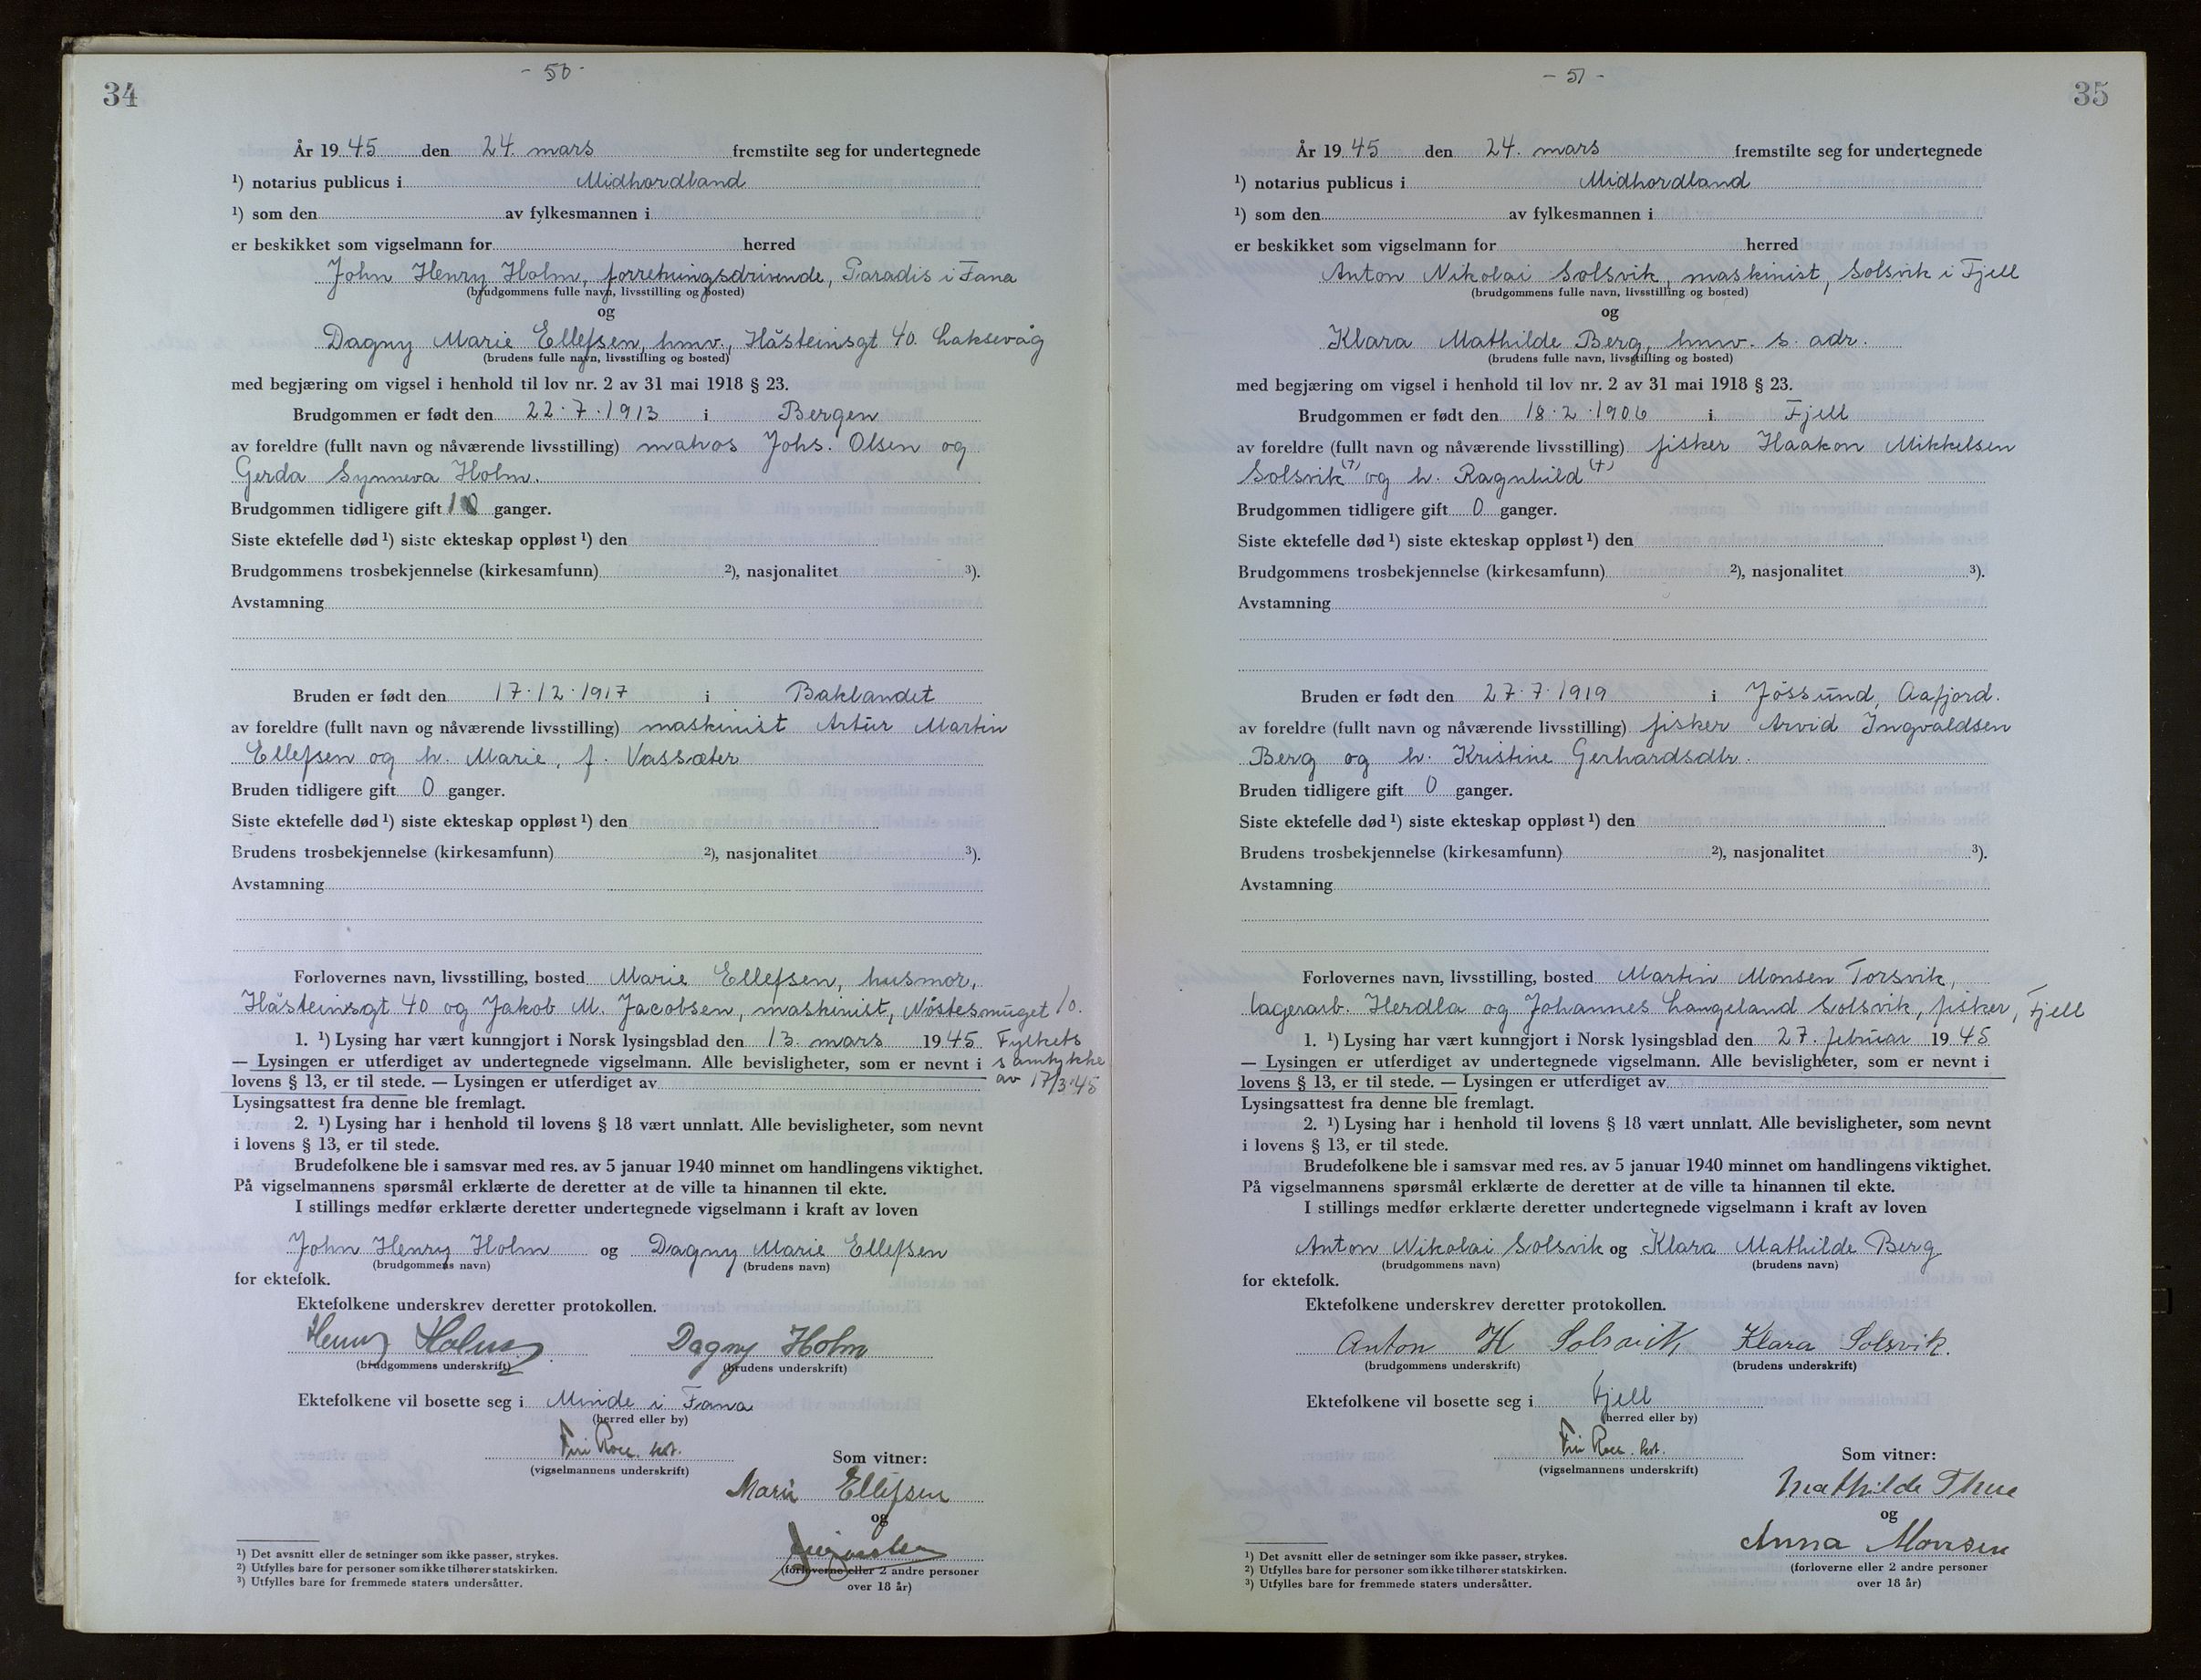 34
- 50 -
År 1945 den 24. mars fremstilte seg for undertegnede
¹) notarius publicus i Midhordland
¹) som den av fylkesmannen i
er beskikket som vigselmann for herred
John Henry Holm, forretningsdrivende, Paradis i Fana
(brudgommens fulle navn, livsstilling og bosted)
og
Dagny Marie Ellefsen, hmv., Håsteinsgt 40. Laksevåg
(brudens fulle navn, livsstilling og bosted)
med begjæring om vigsel i henhold til lov nr. 2 av 31 mai 1918 § 23.
Brudgommen er født den 22.7.1913 i Bergen
av foreldre (fullt navn og nåværende livsstilling) matros Johs. Olsen og
Gerda Synneva Holm.
Brudgommen tidligere gift 1 ganger.
Siste ektefelle død ¹) siste ekteskap oppløst ¹) den
Brudgommens trosbekjennelse (kirkesamfunn) ²), nasjonalitet ³).
Avstamning
Bruden er født den 17.12.1917 i Baklandet
av foreldre (fullt navn og nåværende livsstilling) maskinist Artur Martin
Ellefsen og h. Marie, f. Vassæter
Bruden tidligere gift 0 ganger.
Siste ektefelle død ¹) siste ekteskap oppløst ¹) den
Brudens trosbekjennelse (kirkesamfunn) ²), nasjonalitet ³).
Avstamning
Forlovernes navn, livsstilling, bosted Marie Ellefsen, husmor,
Håsteinsgt 40 og Jakob M. Jacobsen, maskinist, Nöstesmuget 10.
1. ¹) Lysing har vært kunngjort i Norsk lysingsblad den 13. mars 1945 Fylkets
— Lysingen er utferdiget av undertegnede vigselmann. Alle bevisligheter, som er nevnt i samtykke
lovens § 13, er til stede. — Lysingen er utferdiget av av 17/3.45
Lysingsattest fra denne ble fremlagt.
2. ¹) Lysing har i henhold til lovens § 18 vært unnlatt. Alle bevisligheter, som nevnt
i lovens § 13, er til stede.
Brudefolkene ble i samsvar med res. av 5 januar 1940 minnet om handlingens viktighet.
På vigselmannens spørsmål erklærte de deretter at de ville ta hinannen til ekte.
I stillings medfør erklærte deretter undertegnede vigselmann i kraft av loven
John Henry Holm og Dagny Marie Ellefsen
(brudgommens navn) (brudens navn)
for ektefolk.
Ektefolkene underskrev deretter protokollen.
Henry Holm Dagny Holm
(brudgommens underskrift) (brudens underskrift)
Ektefolkene vil bosette seg i Minde i Fana
(herred eller by)
(vigselmannens underskrift)
Som vitner:
Marie Ellefsen
og
(forloverne eller 2 andre personer
over 18 år)
¹) Det avsnitt eller de setninger som ikke passer, strykes.
²) Utfylles bare for personer som ikke tilhører statskirken.
³) Utfylles bare for fremmede staters undersåtter.
35
- 51 -
År 1945 den 24. mars fremstilte seg for undertegnede
¹) notarius publicus i Midhordland
¹) som den av fylkesmannen i
er beskikket som vigselmann for herred
Anton Nikolai Solsvik, maskinist, Solsvik i Fjell
(brudgommens fulle navn, livsstilling og bosted)
og
Klara Mathilde Berg, hmv. s. adr.
(brudens fulle navn, livsstilling og bosted)
med begjæring om vigsel i henhold til lov nr. 2 av 31 mai 1918 § 23.
Brudgommen er født den 18.2.1906 i Fjell
av foreldre (fullt navn og nåværende livsstilling) fisker Haakon Mikkelsen
Solsvik (+) og h. Ragnhild (+)
Brudgommen tidligere gift 0 ganger.
Siste ektefelle død ¹) siste ekteskap oppløst ¹) den
Brudgommens trosbekjennelse (kirkesamfunn) ²), nasjonalitet ³).
Avstamning
Bruden er født den 27.7.1919 i Jössund, Aafjord.
av foreldre (fullt navn og nåværende livsstilling) fisker Arvid Ingvaldsen
Berg og h. Kristine Gerhardsdtr.
Bruden tidligere gift 0 ganger.
Siste ektefelle død ¹) siste ekteskap oppløst ¹) den
Brudens trosbekjennelse (kirkesamfunn) ²), nasjonalitet ³).
Avstamning
Forlovernes navn, livsstilling, bosted Martin Monsen Torsvik,
lagerarb. Herdla og Johannes Langeland Solsvik, fisker, Fjell
1. ¹) Lysing har vært kunngjort i Norsk lysingsblad den 27. februar 1945
— Lysingen er utferdiget av undertegnede vigselmann. Alle bevisligheter, som er nevnt i
lovens § 13, er til stede. — Lysingen er utferdiget av
Lysingsattest fra denne ble fremlagt.
2. ¹) Lysing har i henhold til lovens § 18 vært unnlatt. Alle bevisligheter, som nevnt
i lovens § 13, er til stede.
Brudefolkene ble i samsvar med res. av 5 januar 1940 minnet om handlingens viktighet.
På vigselmannens spørsmål erklærte de deretter at de ville ta hinannen til ekte.
I stillings medfør erklærte deretter undertegnede vigselmann i kraft av loven
Anton Nikolai Solsvik og Klara Mathilde Berg
(brudgommens navn) (brudens navn)
for ektefolk.
Ektefolkene underskrev deretter protokollen.
Anton H Solsvik Klara Solsvik.
(brudgommens underskrift) (brudens underskrift)
Ektefolkene vil bosette seg i Fjell
(herred eller by)
(vigselmannens underskrift)
Som vitner:
Mathilde Thue
og
Anna Monsen
(forloverne eller 2 andre personer
over 18 år)
¹) Det avsnitt eller de setninger som ikke passer, strykes.
²) Utfylles bare for personer som ikke tilhører statskirken.
³) Utfylles bare for fremmede staters undersåtter.